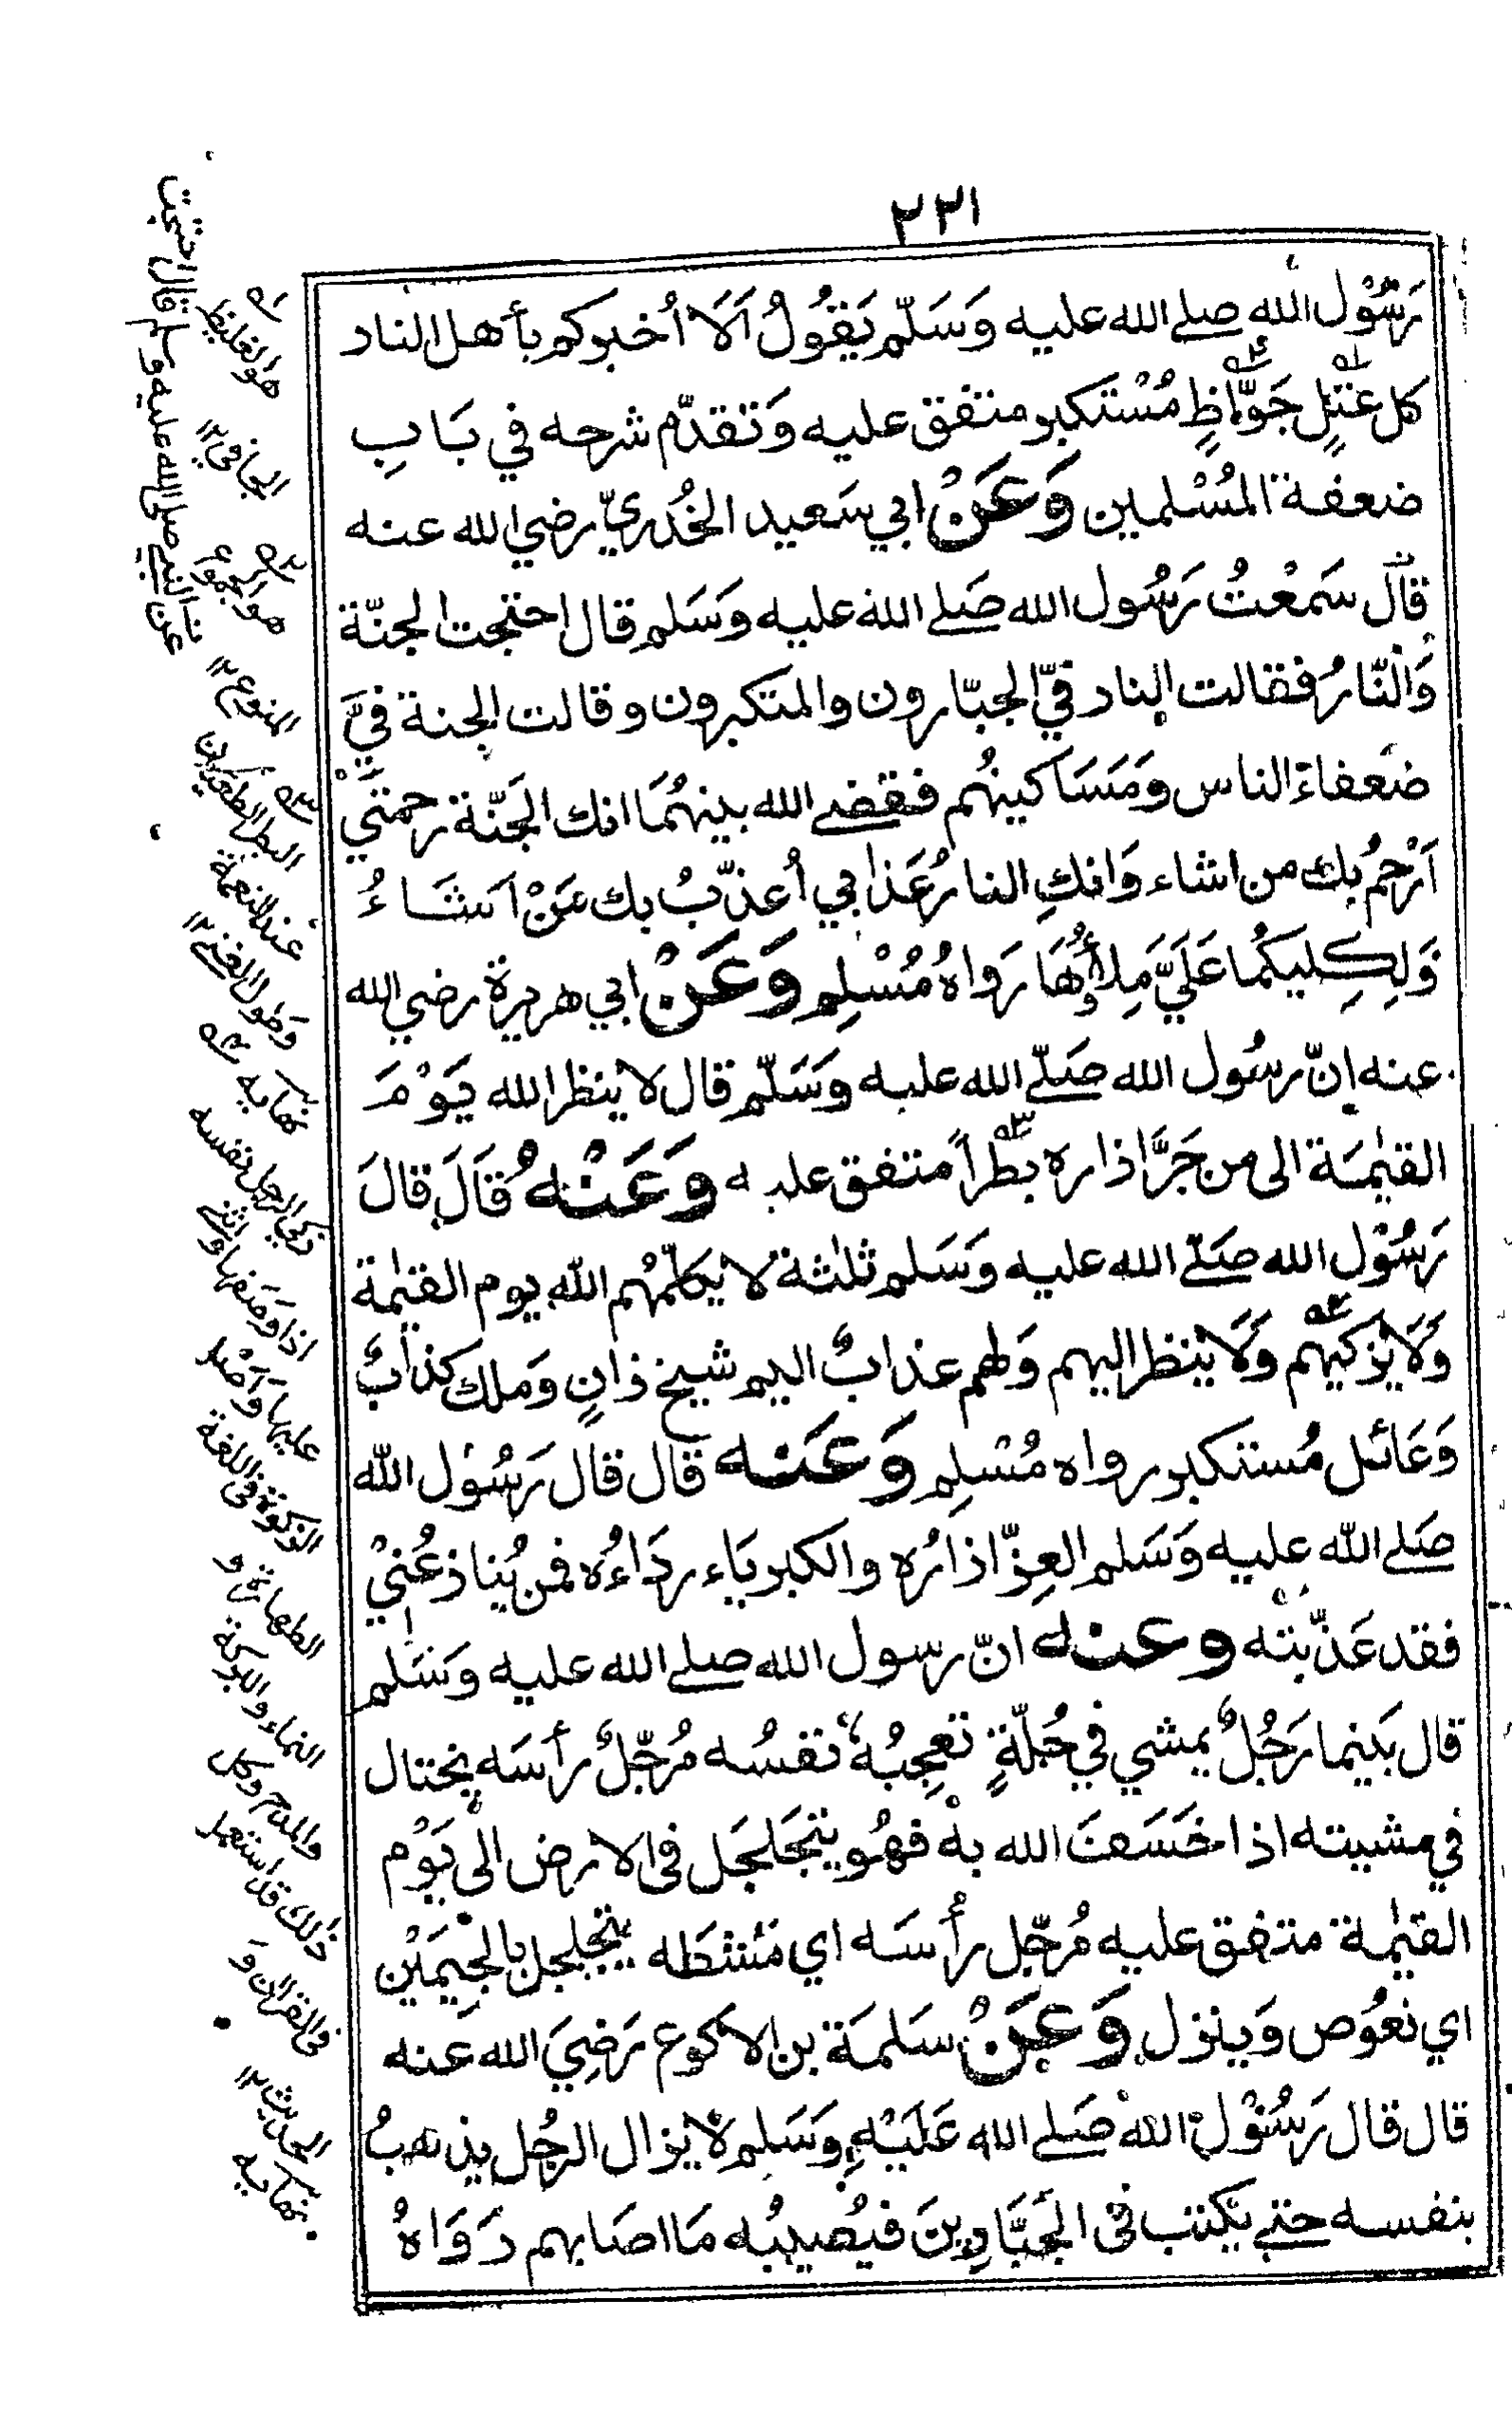 ٢٢١
رَسُوْل الله صلے الله عليه وَسَلّم يَقُولُ اَلَا اُخبركم بأهل النار
كل عُتلٍّ جَوَّاظٍ مُسْتكبر متفق عليه وَتقدّم شرحه في بَابِ
ضعفة المُسْلمين وَعَنْ ابي سَعيد الخُدريّ رضي الله عنه
قال سَمعْتُ رَسُول الله صَلے الله عليه وَسَلم قال احتجت الجنّة
وَالنّارُ فقالت النار فيّ الجبّارون والمتكبرون وقالت الجنة فيَّ
ضعفاءَ الناس وَمَسَاكينهُم فقضے الله بينهُمَا انك الجَنّة رحمتيْ
اَرْحمُ بك من اشاء وَانكِ النارُ عَذابي اُعذّبُ بك مَنْ اَشَاءُ
وَلِكِليكمُا عَلَيَّ مِلأُهَا رَوَاهُ مُسْلِم وَعَنْ ابي هريرة رضي الله
عنه انّ رسُول الله صَلّے الله عليه وَسَلّم قال لا ينظر الله يَوْمَ
القيٰمَة الى من جَرَّ اذاره بَطراً متفق عليه وَعَنْهُ قَالَ قالَ
رَسُوْل الله صَلّے الله عليه وَسَلم ثلٰثة لا يكلّمهُم الله يوم القيٰمة
وَلَا يُزكيهم وَلَا ينظر اليهم وَلهم عذابٌ اليم شيخ ذانٍ وَملك كذابٌ
وَعَائل مُستكبر رواه مُسْلِم وَعَنه قال قال رَسُوْل الله
صَلے الله عليه وَسَلم العِزّ اذارُه والكبرياء ردَاءُه فمن يُناذعُنيْ
فقد عَذّبته وعنه انّ رسول الله صلے الله عليه وَسَلم
قال بَينما رَجُلٌ يمشي في حُلّةٍ تعجِبُه نفسُه مُرجّلٌ رأسَه يختال
في مشيته اذا خَسَفَ الله به فهُو يتجَلجَل في الارض الى يَوْم
القيٰمة متفق عليه مُرجّل رأسَه اي مَشطَه يتجلجل بالجِيمَيْن
اي نغُوص وَينزل وَعَنْ سَلمَة بن الاكوع رَضِيَ الله عنه
قال قال رَسُوْل الله صَلے الله عَلَيْهِ وَسَلم لَا يزال الرجُل يذهبُ
بنفسه حتے يكتب في الجَبَّارِينَ فيُصيبُه مَا اصَابهم رَوَاهُ
عن النبي صلى الله عليه وسلم قال احتجت
هو الغليظ
الجافي ١٢
المنوع ١٢
البطر الطغيان
عند النعمة
وَطول الغنے ١٢
نهايه
زكى الرجل نفسه
اذا وَصَفها واثنے
عليها وَاَصْل
الزكوة في اللغة
الطهارة و
النماء والبركة
والمدح وكل
ذٰلك قد استعمل
في القران وَ
الحديث ١٢
نهايه